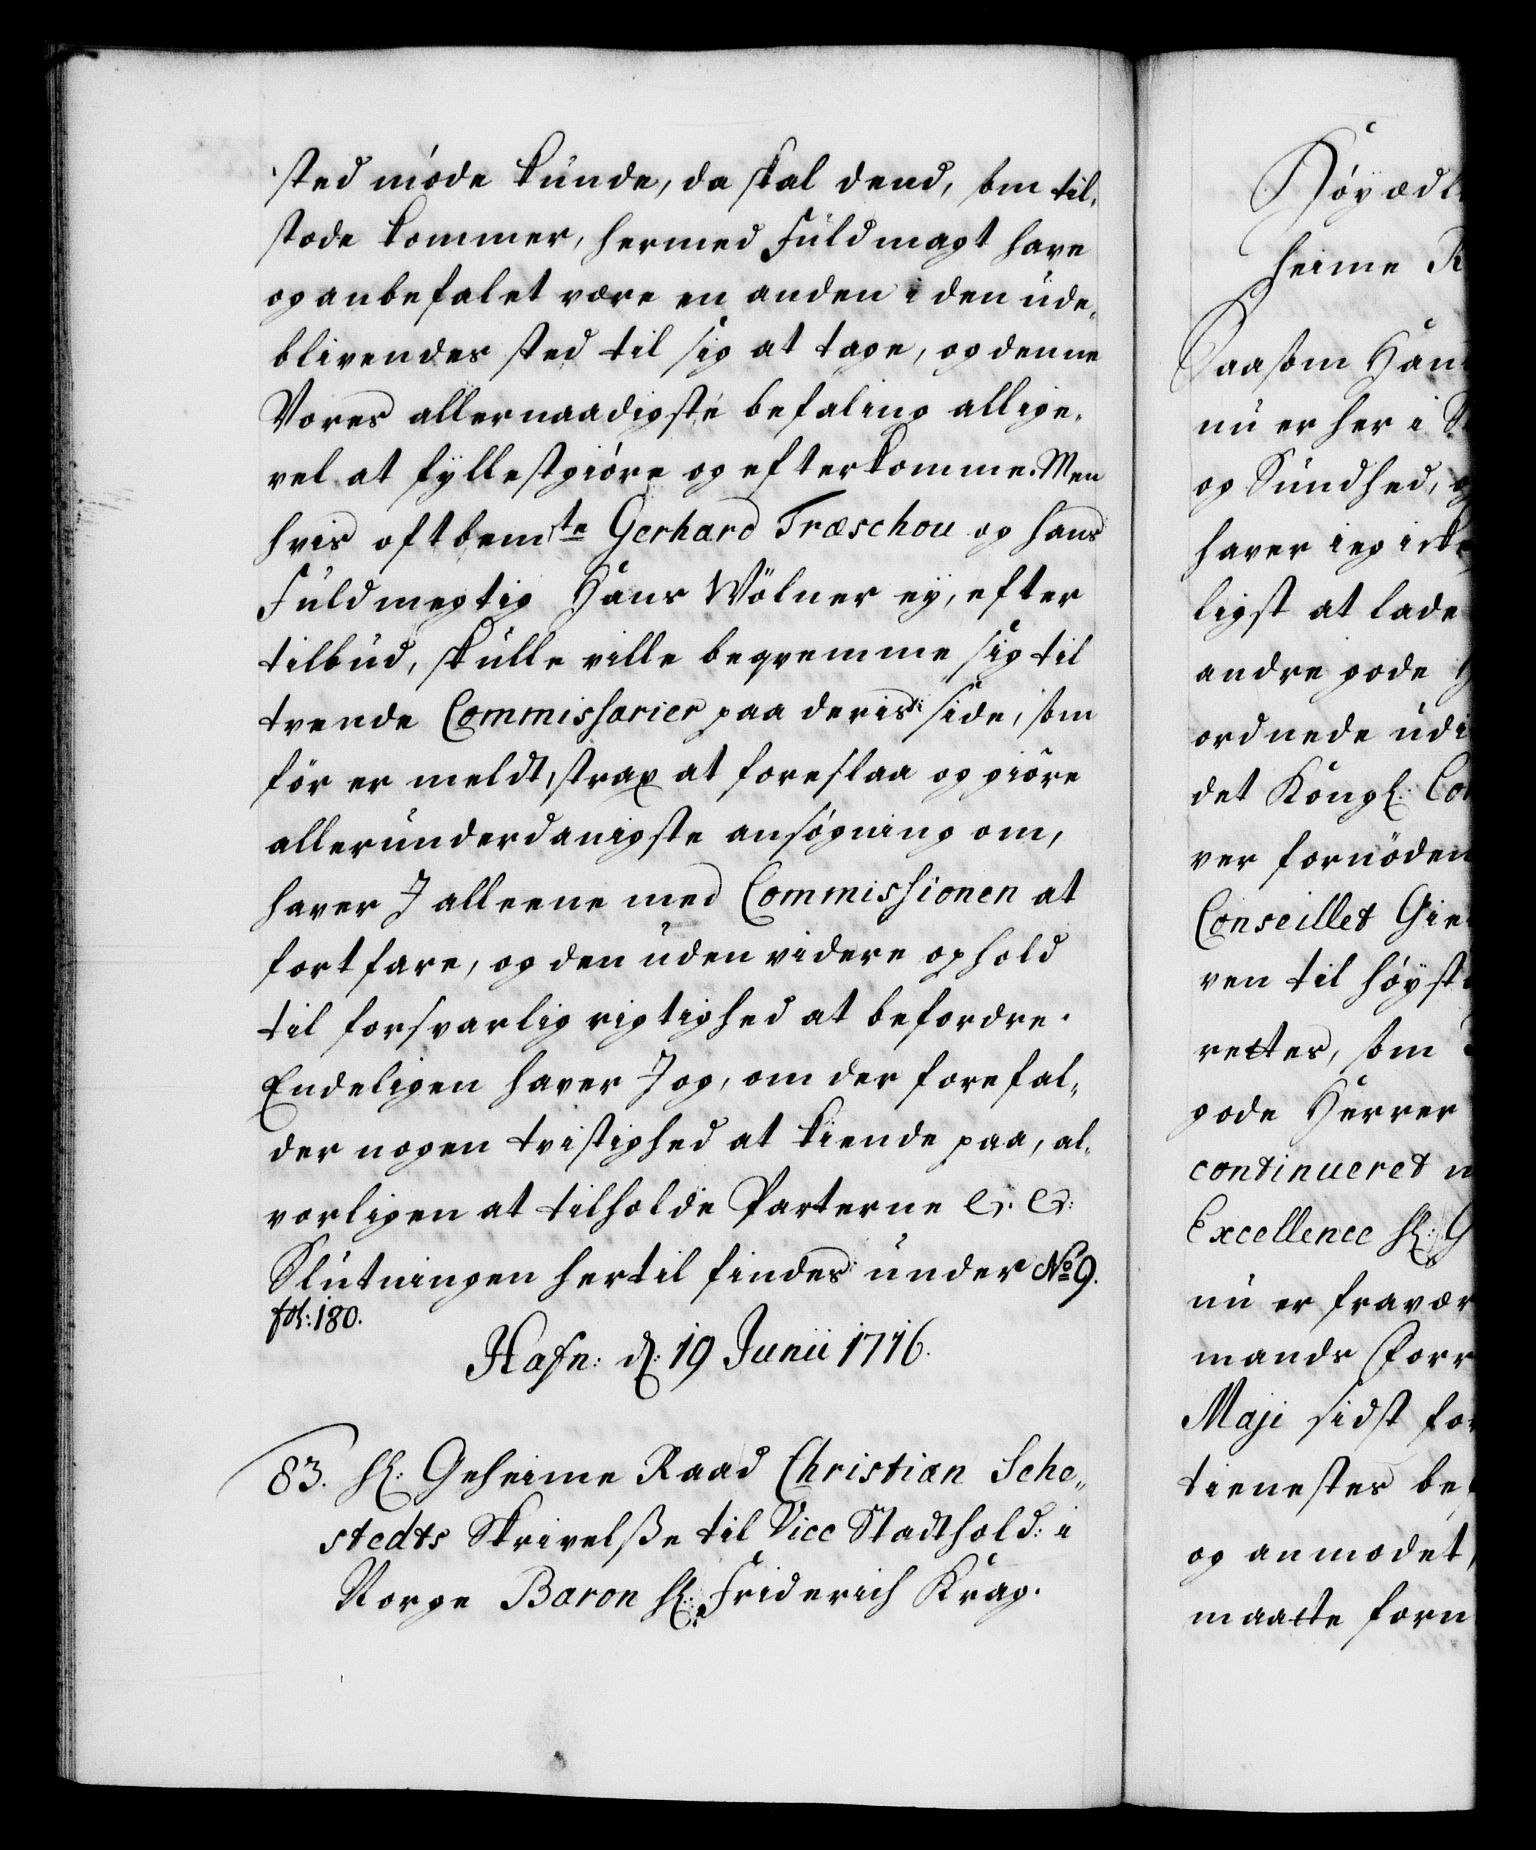 sted móde kunde, da skal dend, som til,
stæde kommer, hermed Fuldmagt have
og anbefalet være en anden i den ude,
blivendes sted til sig at tage, og denne
Vores allernaadigste befaling allige,
vel at fyllestgióre og efterkomme. Men
hvis oftbemte Gerhard Træschou og hans
Fuldmegtig Hans Wölner ey, efter
tilbud, skulle ville beqvemme sig til
tvende Commissarier paa deris side, som
för er meldt, strax at foreslaa og giöre
allerunderdanigste ansógning om,
haver J alleene med Commissionen at
fortfare, og den uden videre ophold
til forsvarlig rigtighed at befordre.
Endeligen haver J og, om der forefal,
der nogen tvistighed at kiende paa, al,
vorligen at tilholde Parterne &. &:
Slutningen hertil findes under No 9.
fol: 180.
Hafn: d: 19 Junii 1716.
83. H: Geheime Raad Christian Sche,,
stedts Skrivelße til Vice Stadthold: i
Norge Baron H: Friderich Krag.
Höyædl
heime R
Saasom Han
nu er her i
og Sundhed,
haver ieg icke
ligst at lade
andre gode
ordnede udi
det Kongl: Con
ver fornöden
Conseillet Gie
ven til höyst
rettes, som
gode Herrer
continueret
Excellence H: G
nu er fravær
mands Forr
Maji sidst for
tienestes be
og anmodet,
maatte forn